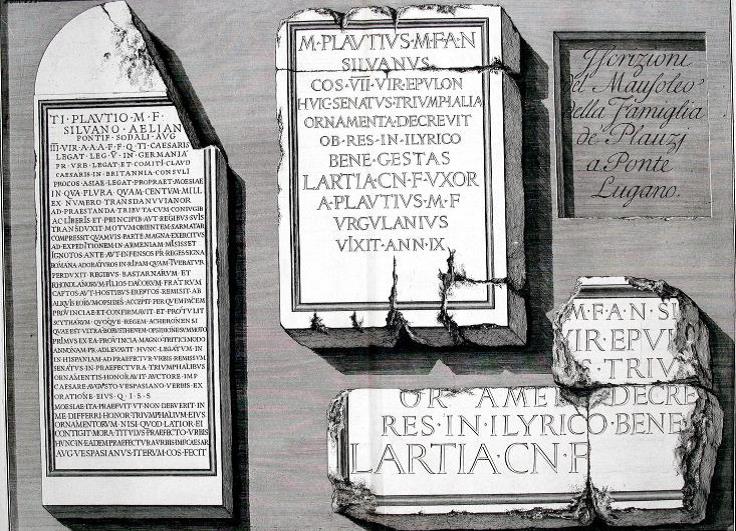 TI·PLAVTIO·M·F·
SILVANO·AELIAN
PONTIF·SODALI·AVG
III·VIR·A·A·A·F·F·Q·TI·CAESARIS
LEGAT·LEG·V·IN·GERMANIA
PR·VRB·LEGAT·ET·COMITI·CLAVD
CAESARIS·IN·BRITANNIA·CONSVLI
PROCOS·ASIAE·LEGAT·PROPRAET·MOESIAE
IN·QVA·PLVRA·QVAM·CENTVM·MILL
EX·NVMERO·TRANSDANVVIANOR
AD·PRAESTANDA·TRIBVTA·CVM·CONIVGIB
AC·LIBERIS·ET·PRINCIPIB·AVT·REGIBVS·SVIS
TRANSDVXIT·MOTVM·ORIENTEM·SARMATAR
COMPRESSIT·QVAMVIS·PARTE·MAGNA·EXERCITVS
AD·EXPEDITIONEM·IN·ARMENIAM·MISISSET
IGNOTOS·ANTE·AVT·INFENSOS·PR·REGES·SIGNA
ROMANA·ADORATVROS·IN·RIPAM·QVAM·TVEBATVR
PERDVXIT·REGIBVS·BASTARNARVM·ET
RHOXOLANORVM·FILIOS·DACORVM·FRATRVM
CAPTOS·AVT·HOSTIBVS·EREPTOS·REMISIT·AB
ALIQVIS·EORVM·OPSIDES·ACCEPIT·PER·QVEM·PACEM
PROVINCIAE·ET·CONFIRMAVIT·ET·PROTVLIT
SCYTHARVM·QVOQVE·REGEM·ACHERONEN SI
QVAE·EST·VLTRA·BORVSTHENEN·OPSIDIONE·SVMMOTO
PRIMVS·EX·EA·PROVINCIA·MAGNO·TRITICI·MODO
ANNONAM·PR·ADLEVAVIT·HVNC·LEGATVM·IN
IN·HISPANIAM·AD·PRAEFECTVR·VRBIS·REMISSVM
SENATVS·IN·PRAEFECTVRA·TRIVMPHALIBVS
ORNAMENTIS·HONORAVIT·AVCTORE·IMP
CAESARE·AVGVSTO·VESPASIANO·VERBIS·EX
ORATIONE·EIVS·Q·I·S·S
MOESIAE·ITA·PRAEFVIT·VT·NON·DEBVERIT·IN
ME·DIFFERRI·HONOR·TRIVMPHALIVM·EIVS
ORNAMENTORVM·NISI·QVOD·LATIOR·EI
CONTIGIT·MORA·TITVLVS·PRAEFECTO·VRBIS
HVNC·IN·EADEM·PRAEFECTVRA·VRBIS·IMP·CAESAR
AVG·VESPASIANVS·ITERVM·COS·FECIT
M·PLAVTIVS·M·F·A·N
SILVANVS
COS·VII·VIR·EPVLON
HVIC·SENATVS·TRIVMPHALIA
ORNAMENTA·DECREVIT
OB·RES·IN·ILYRICO
BENE·GESTAS
LARTIA·CN·F·VXOR
A·PLAVTIVS·M·F
VRGVLANIVS
VIXIT·ANN·IX
Iscrizioni
del Mausoleo
della Famiglia
de' Plauzj
a Ponte
Lugano.
M·F·A·N·SI
VIR·EPV
TRIV
OR AMEN DECRE
RES·IN·ILYRICO·BENE
LARTIA·CN·F